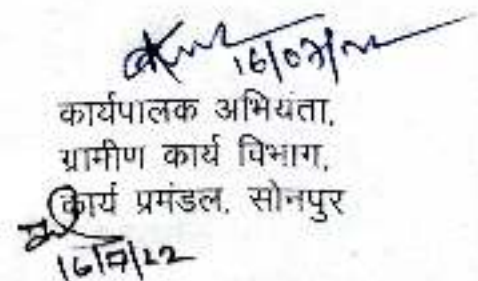 16/07/22
कार्यपालक अभियंता,
ग्रामीण कार्य विभाग,
कार्य प्रमंडल, सोनपुर
16/7/22